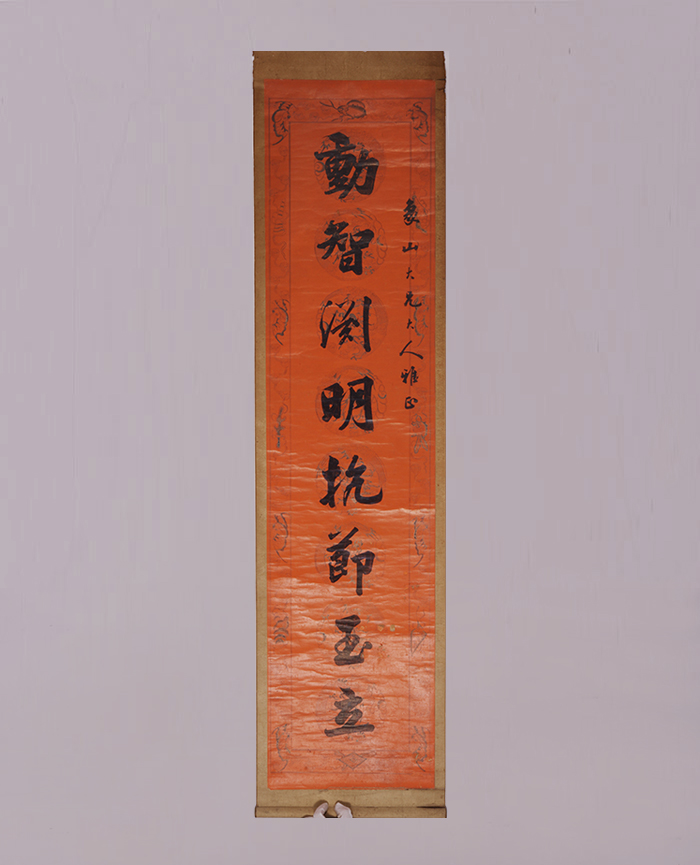 象山大兄大人雅正
動智渊明抗節玉立